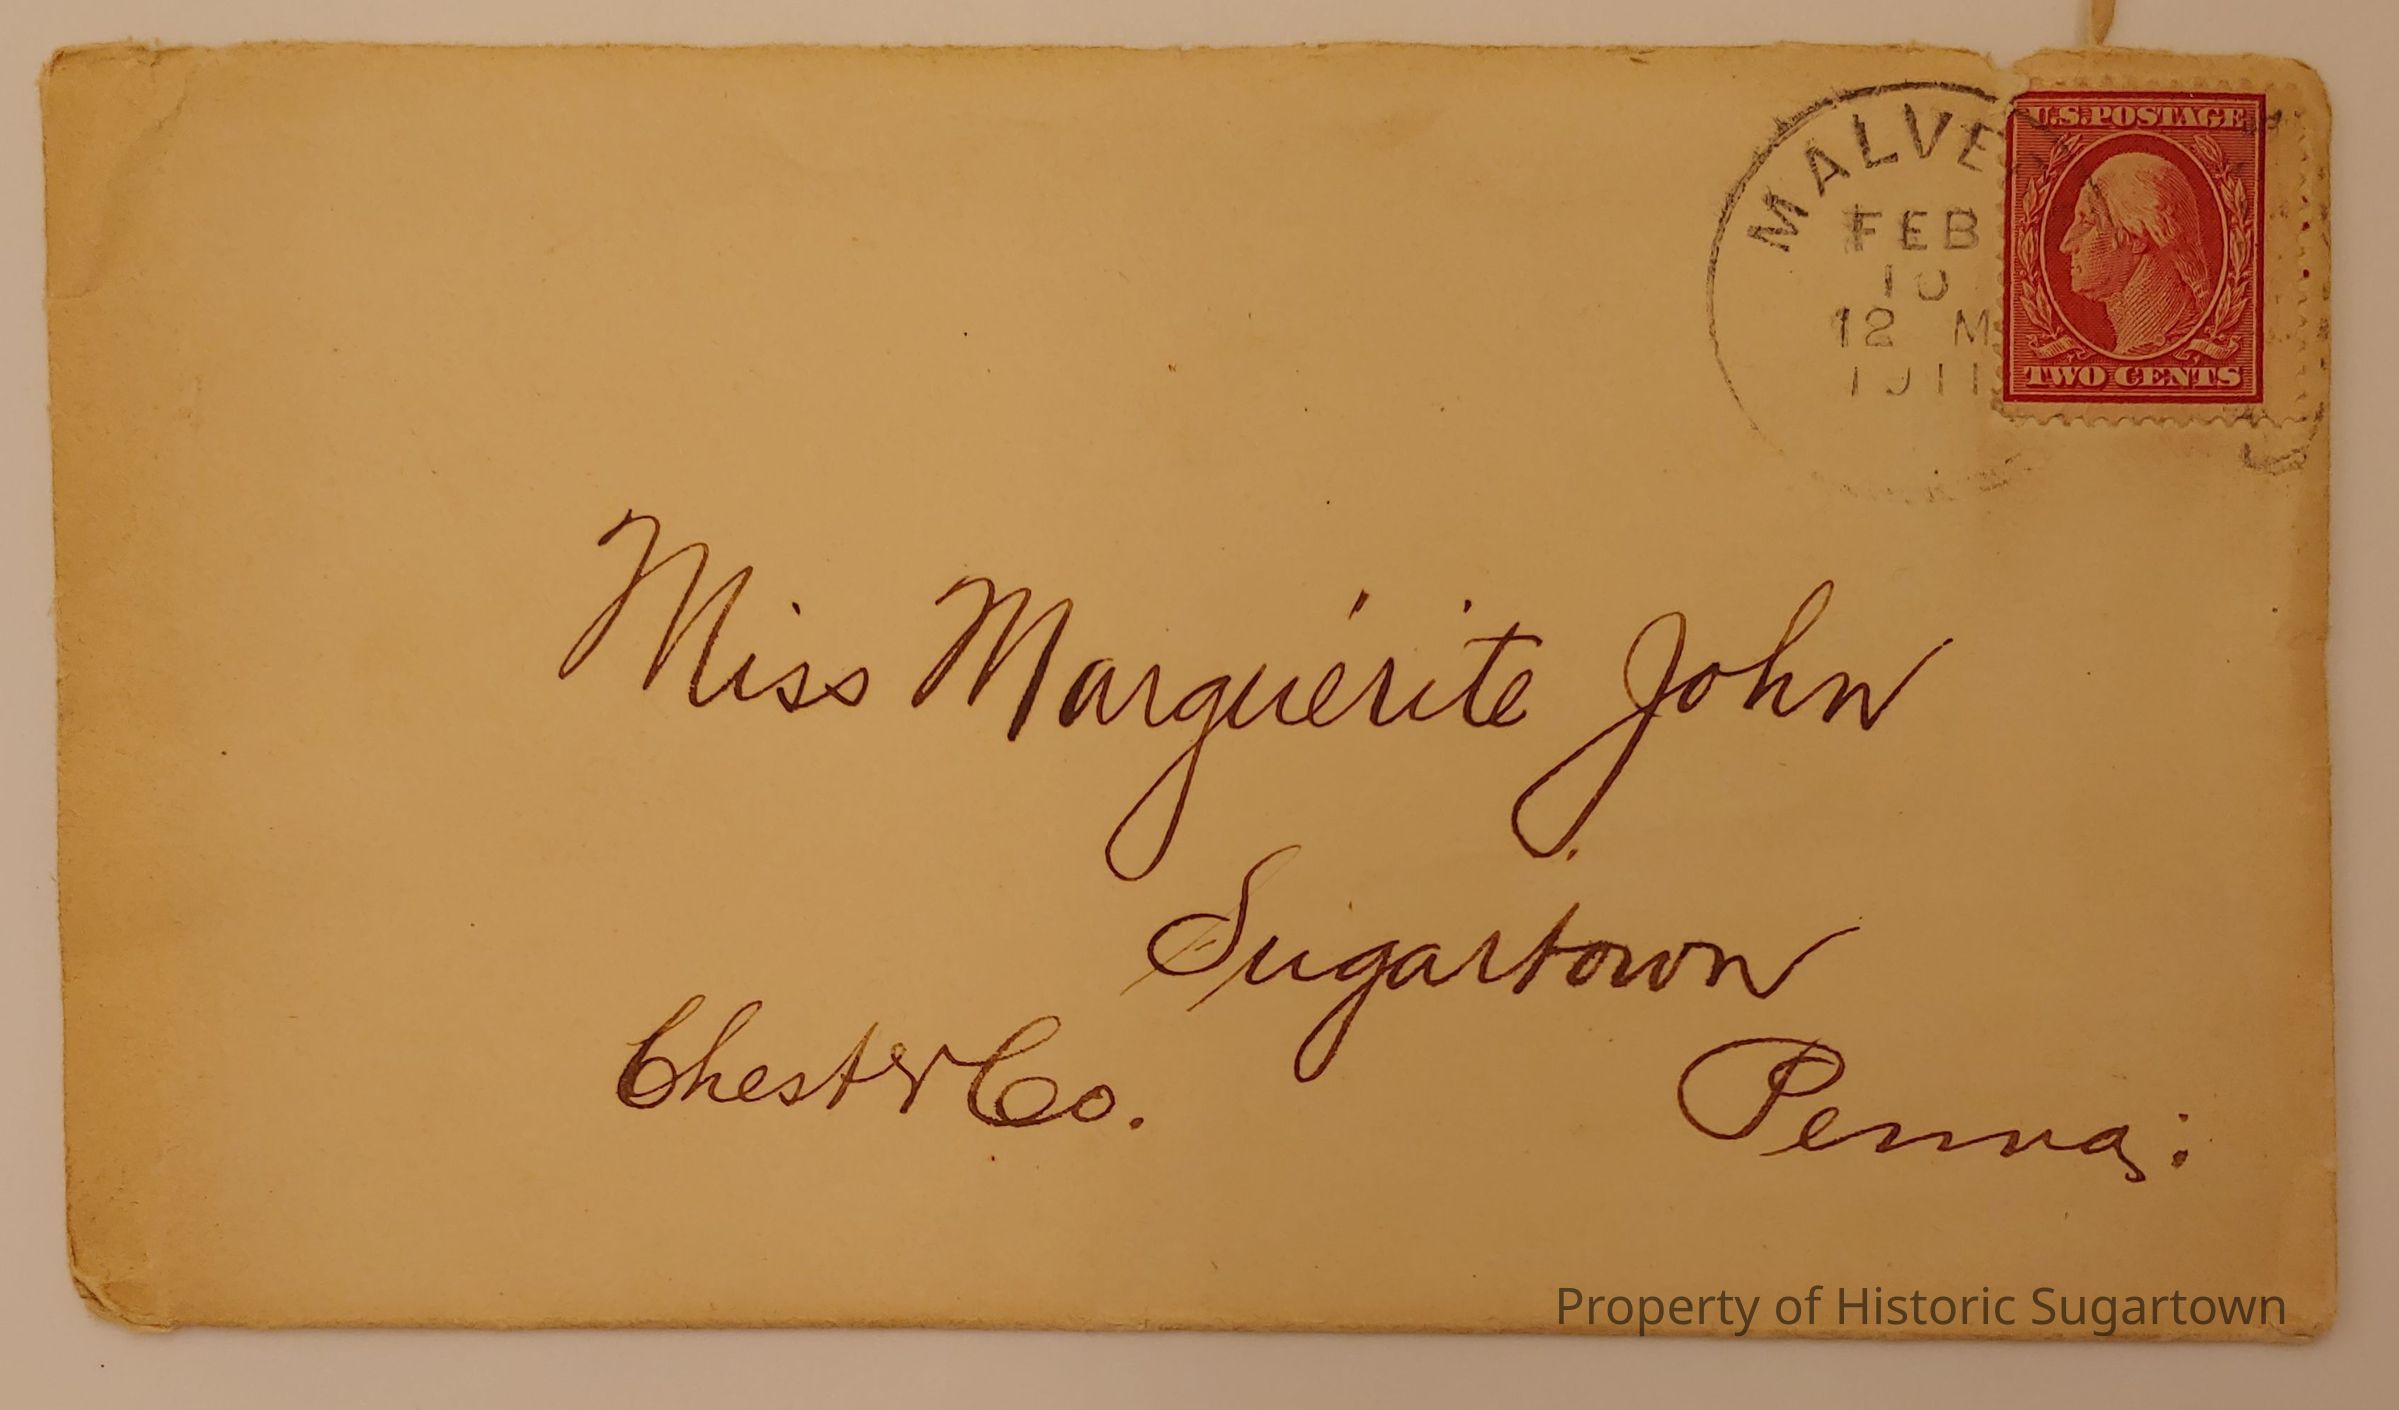 MALVE
FEB
10
12 M
1911
U.S. POSTAGE
TWO CENTS
Miss Marguerite John
Sugartown
Chester Co.
Penna:
Property of Historic Sugartown